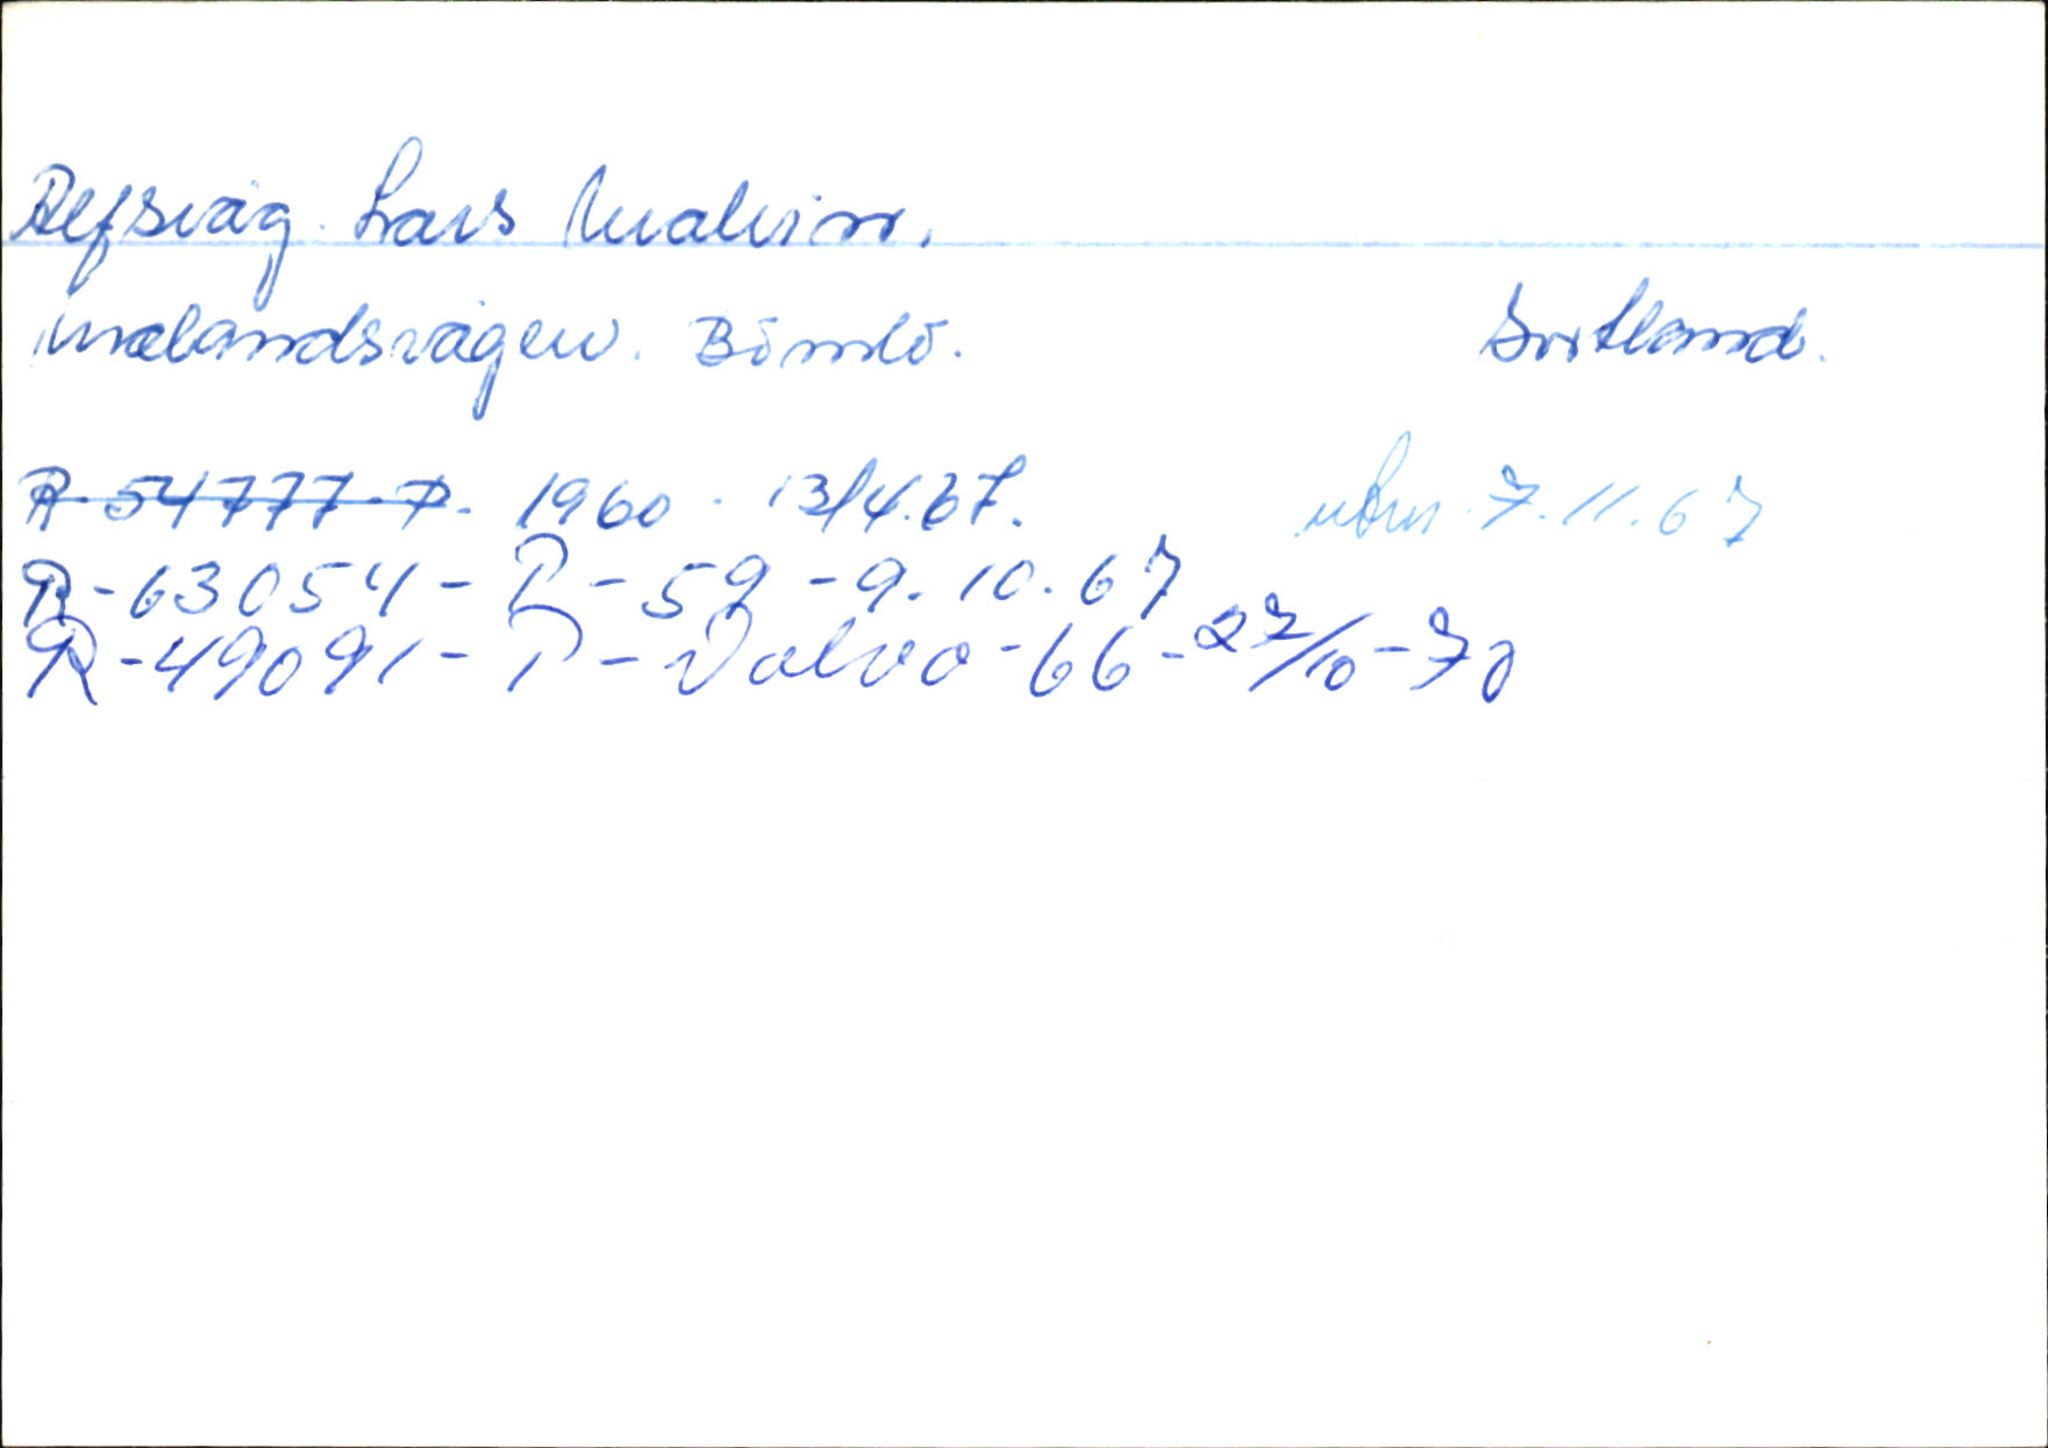 Refsvåg. Lars Malvin.
Mælandsvågen. Bömlö. Sortland.
R-54777-P- 1960. 13/4.67. 7.11.67
R-63054-P-59-9.10.67
R-49091-P-Volvo-66-27/10-70